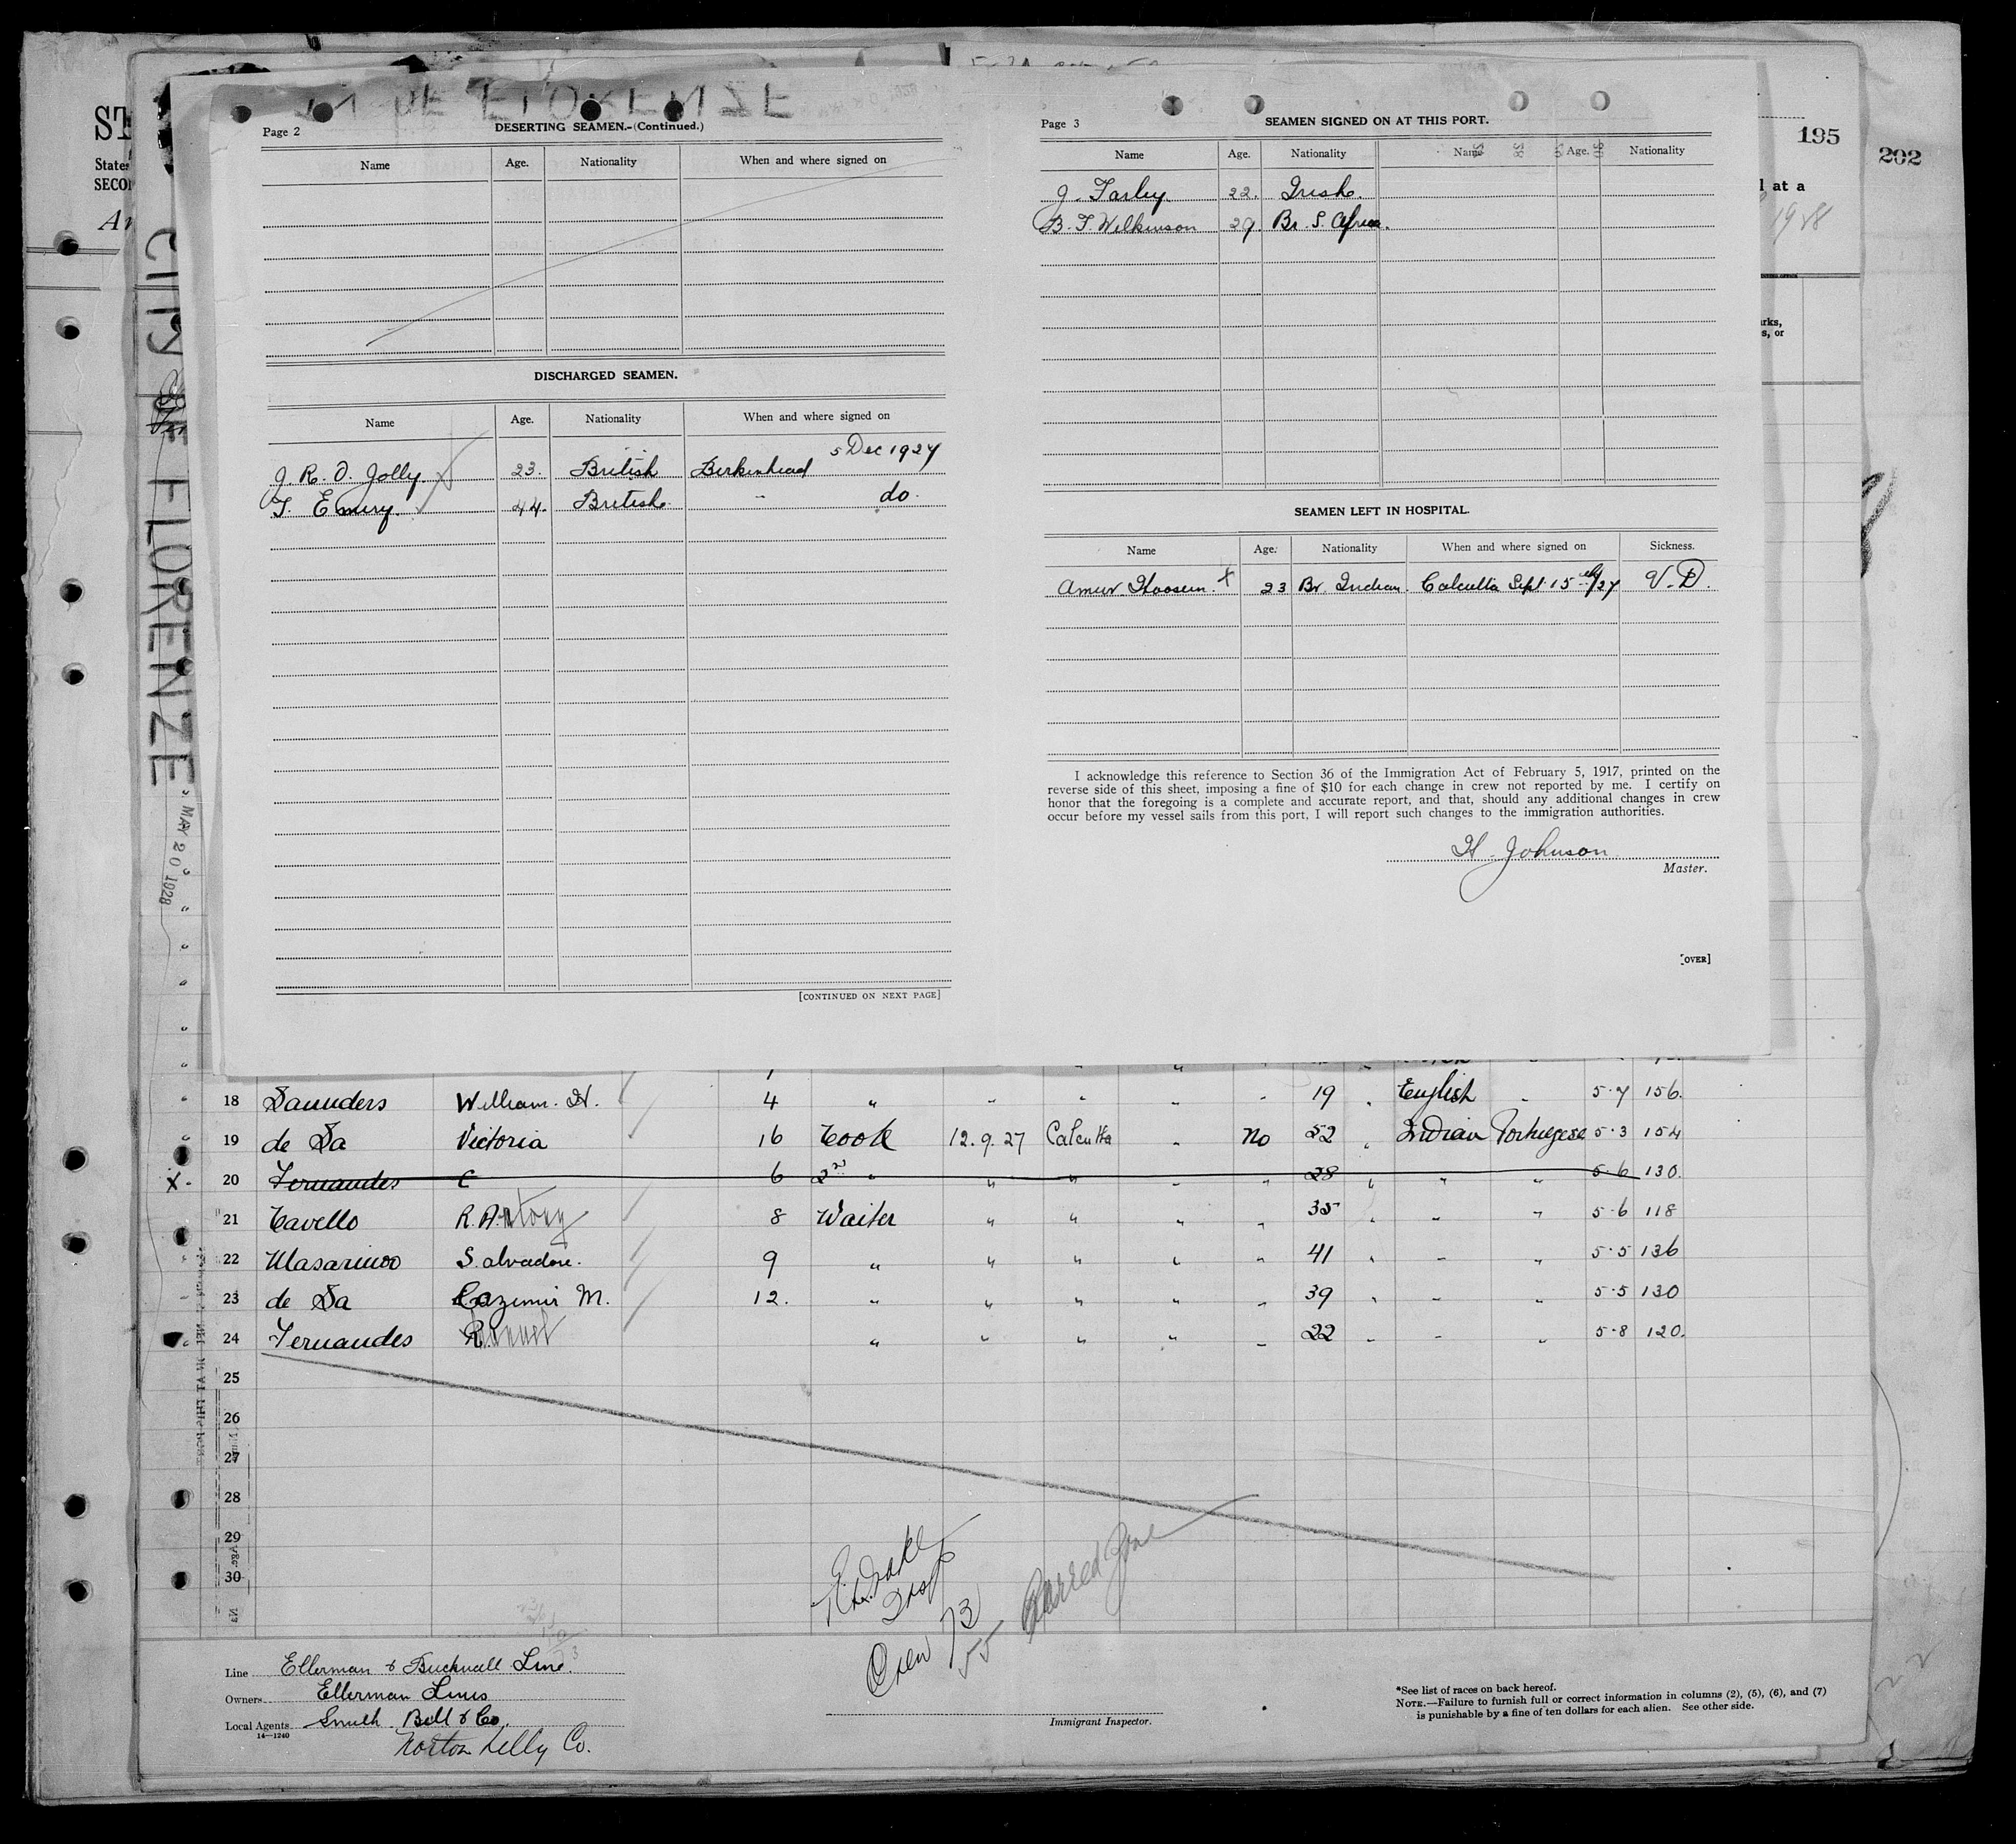 195
202
States
1928
CITY DE FLORENZE
MAY 20 1928
Page 2
DESERTING SEAMEN.-(Continued.)
Name Age. Nationality When and where signed on
DISCHARGED SEAMEN.
Name Age. Nationality When and where signed on
5 Dec 1927
J. R. O. Jolly. 23. British Birkenhead
T. Emery. 44. British " do.
[CONTINUED ON NEXT PAGE]
Page 3
SEAMEN SIGNED ON AT THIS PORT.
Name Age. Nationality Name Age. Nationality
J. Farley. 22. Irish.
B. T. Wilkinson 29. Br. S. African.
SEAMEN LEFT IN HOSPITAL.
Name Age. Nationality When and where signed on Sickness.
Amur Hoosein. X 23 Br. Indian. Calcutta Sept 15th/27 V. D.
I acknowledge this reference to Section 36 of the Immigration Act of February 5, 1917, printed on the
reverse side of this sheet, imposing a fine of $10 for each change in crew not reported by me. I certify on
honor that the foregoing is a complete and accurate report, and that, should any additional changes in crew
occur before my vessel sails from this port, I will report such changes to the immigration authorities.
H. Johnson
Master.
[OVER]
18 Saunders William. H. 4 " " " " " 19 " English " 5.7 156.
19 de Sa Victoria 16 Cook 12.9.27 Calcutta " No 52 " Indian Portugese 5.3 154
X. 20 Fernandes C 6 2nd " " " " " 28 " " " 5.6 130.
21 Cavello R. Antony 8 Waiter " " " " 35 " " " 5.6 118
22 Masarinoo Salvadore. 9 " " " " " 41 " " " 5.5 136
23 de Sa Cazimir M. 12. " " " " " 39 " " " 5.5 130
24 Fernandes R. " " " " " 22 " " " 5.8 120.
25
26
27
28
29
30
Crew 73
55
Barred Zone
Line Ellerman & Bucknall Line.
Owners Ellerman Lines
Local Agents Smith Bell & Co.
14—1240
Norton Lilly Co.
Immigrant Inspector.
*See list of races on back hereof.
NOTE.—Failure to furnish full or correct information in columns (2), (5), (6), and (7)
is punishable by a fine of ten dollars for each alien. See other side.